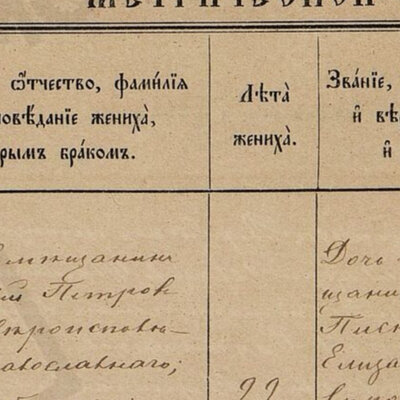 ѿтчество, фами́лїя
повѣ́данїе жениха̀,
рымъ бра́комъ.
Лѣта̀
жениха̀.
Зва́нїе,
и҆ вѣ
и҆
мищанинъ
Петров
вѣроисповѣ-
авославнаго;
22
Дочь
щани
Елиза